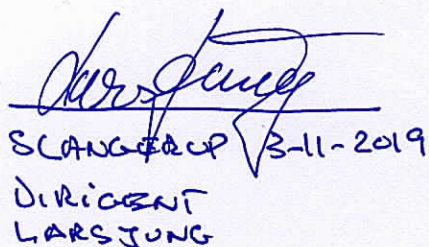 Lars Jung
SLANGERUP 3-11-2019
DIRIGENT
LARS JUNG